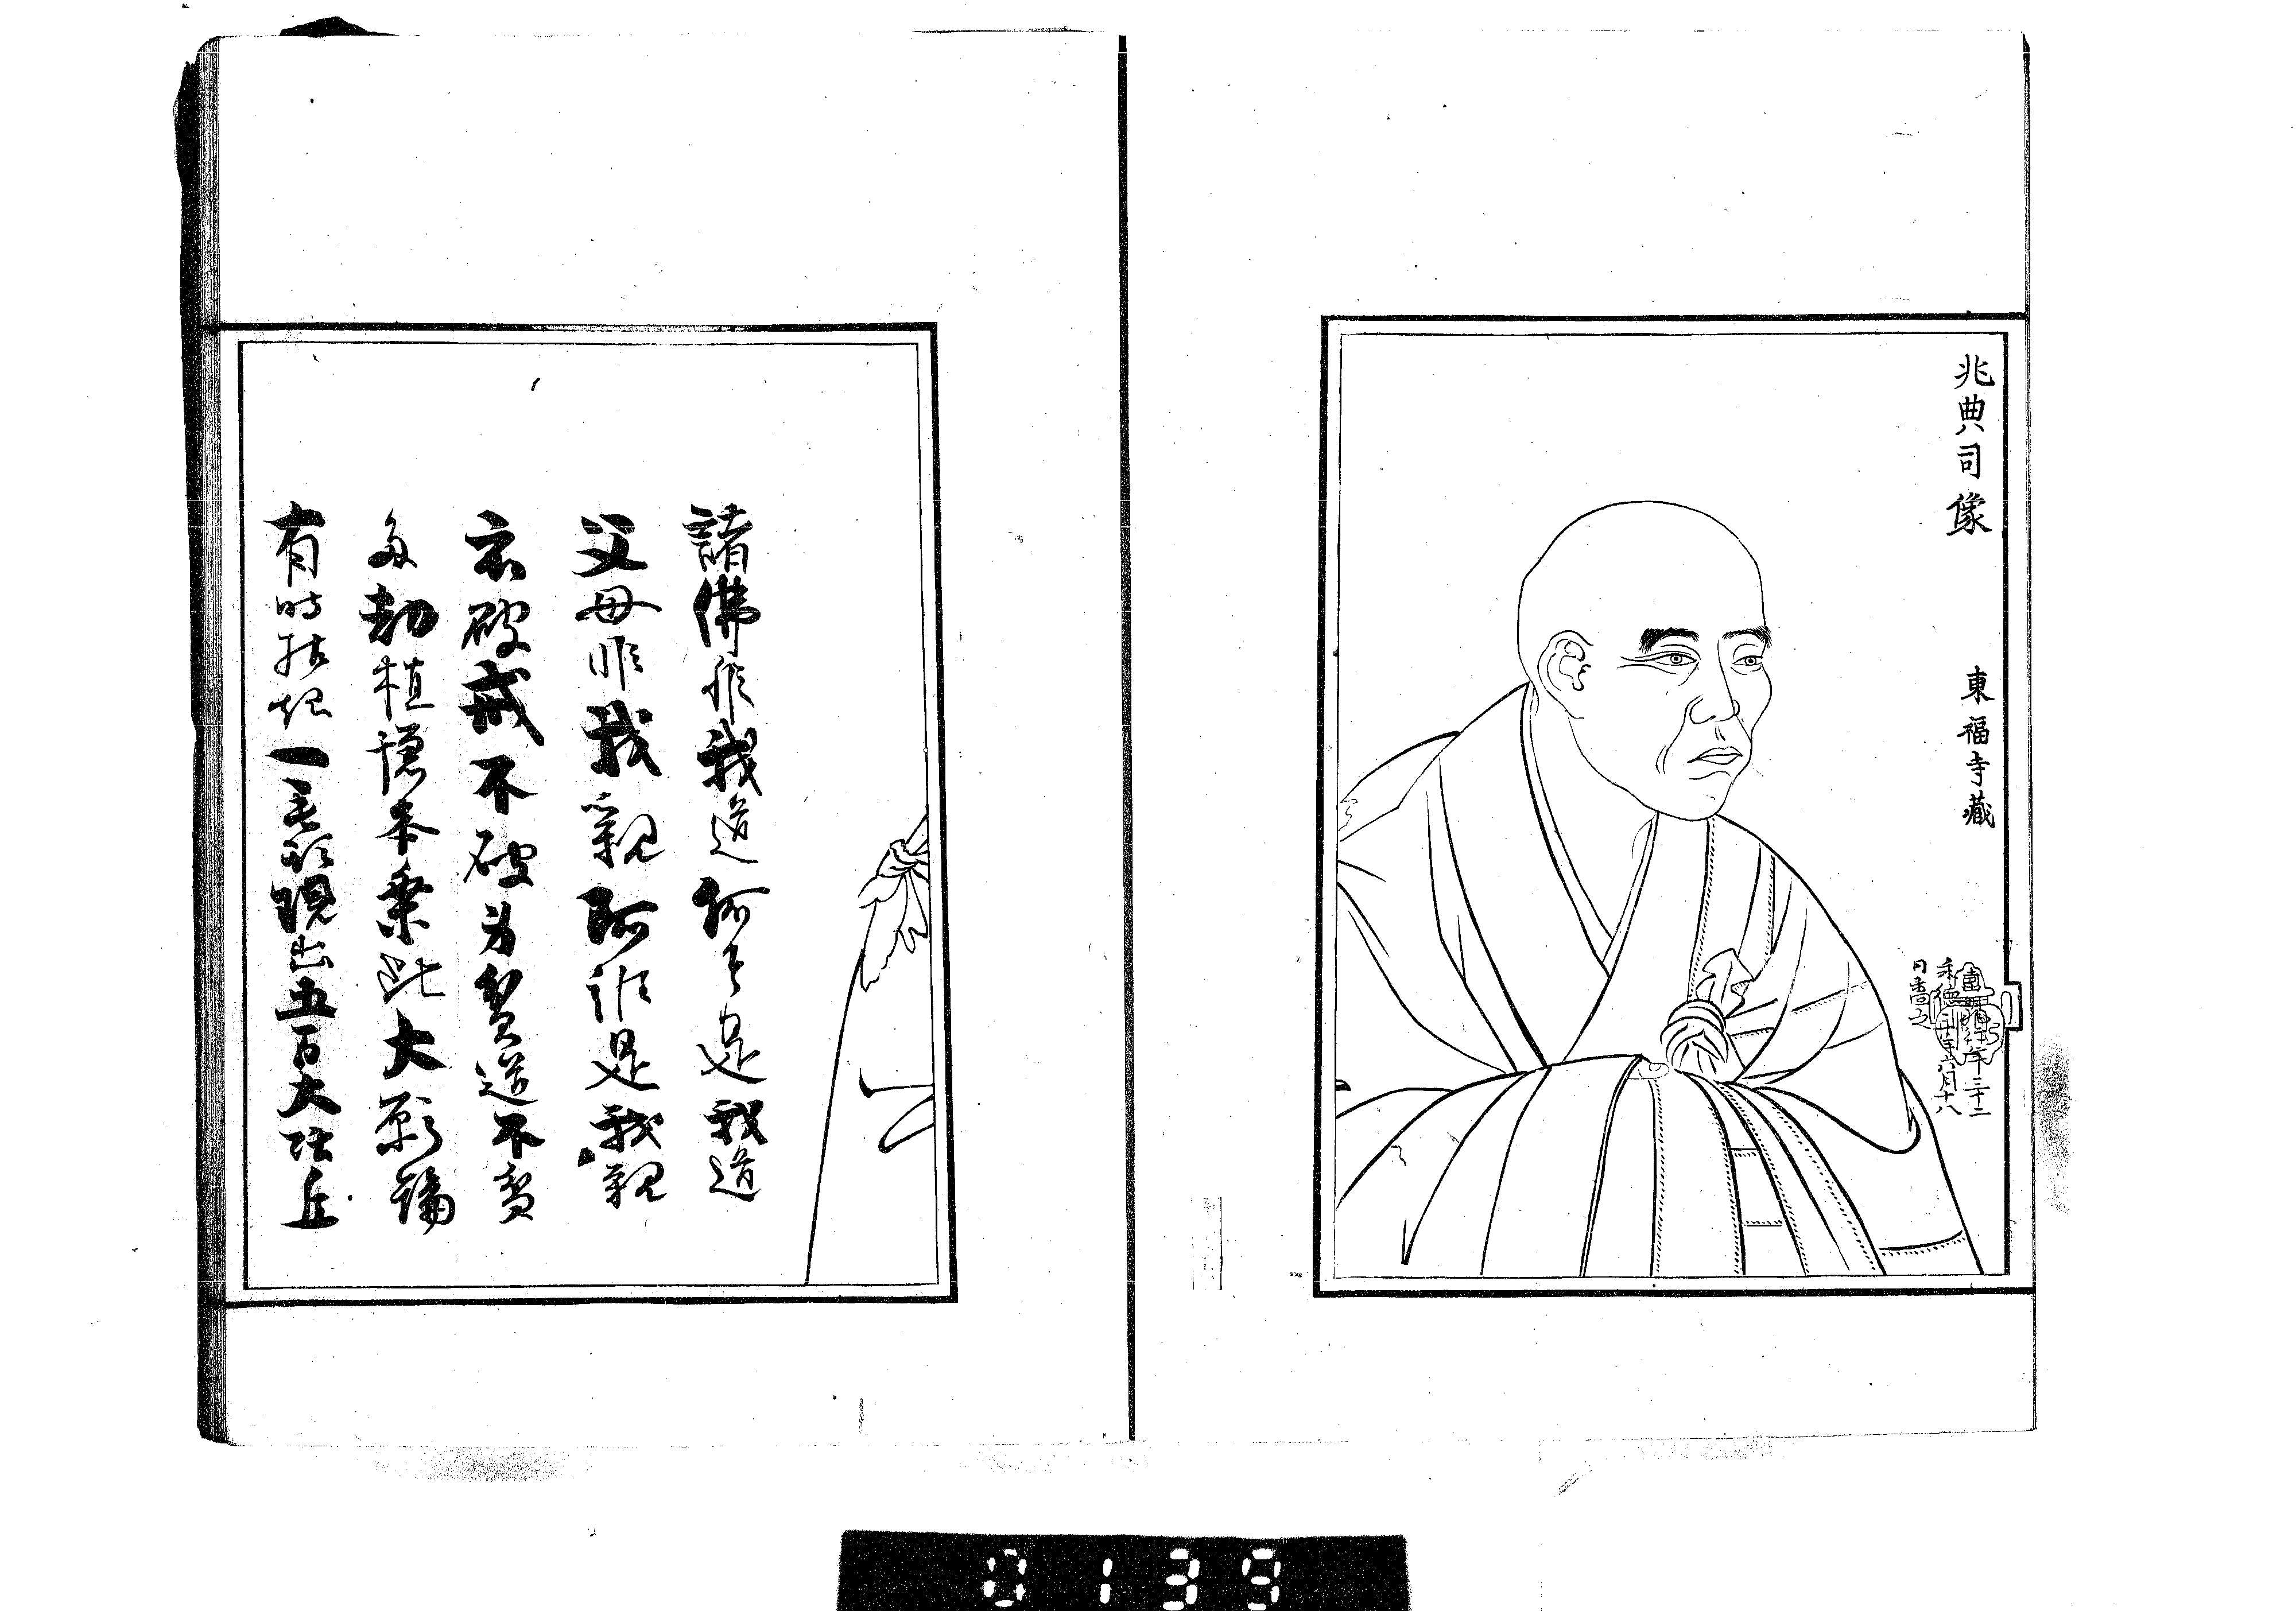 兆典司像
東福寺藏
年三十二
永德二年六月十八
日書之
諸佛非我道何者是我道
父母非我親阿誰是我親
衣破戒不破為貧道不貧
多劫植德本乗此大願輪
有時拈起一毫頭現出五百大比丘
0139